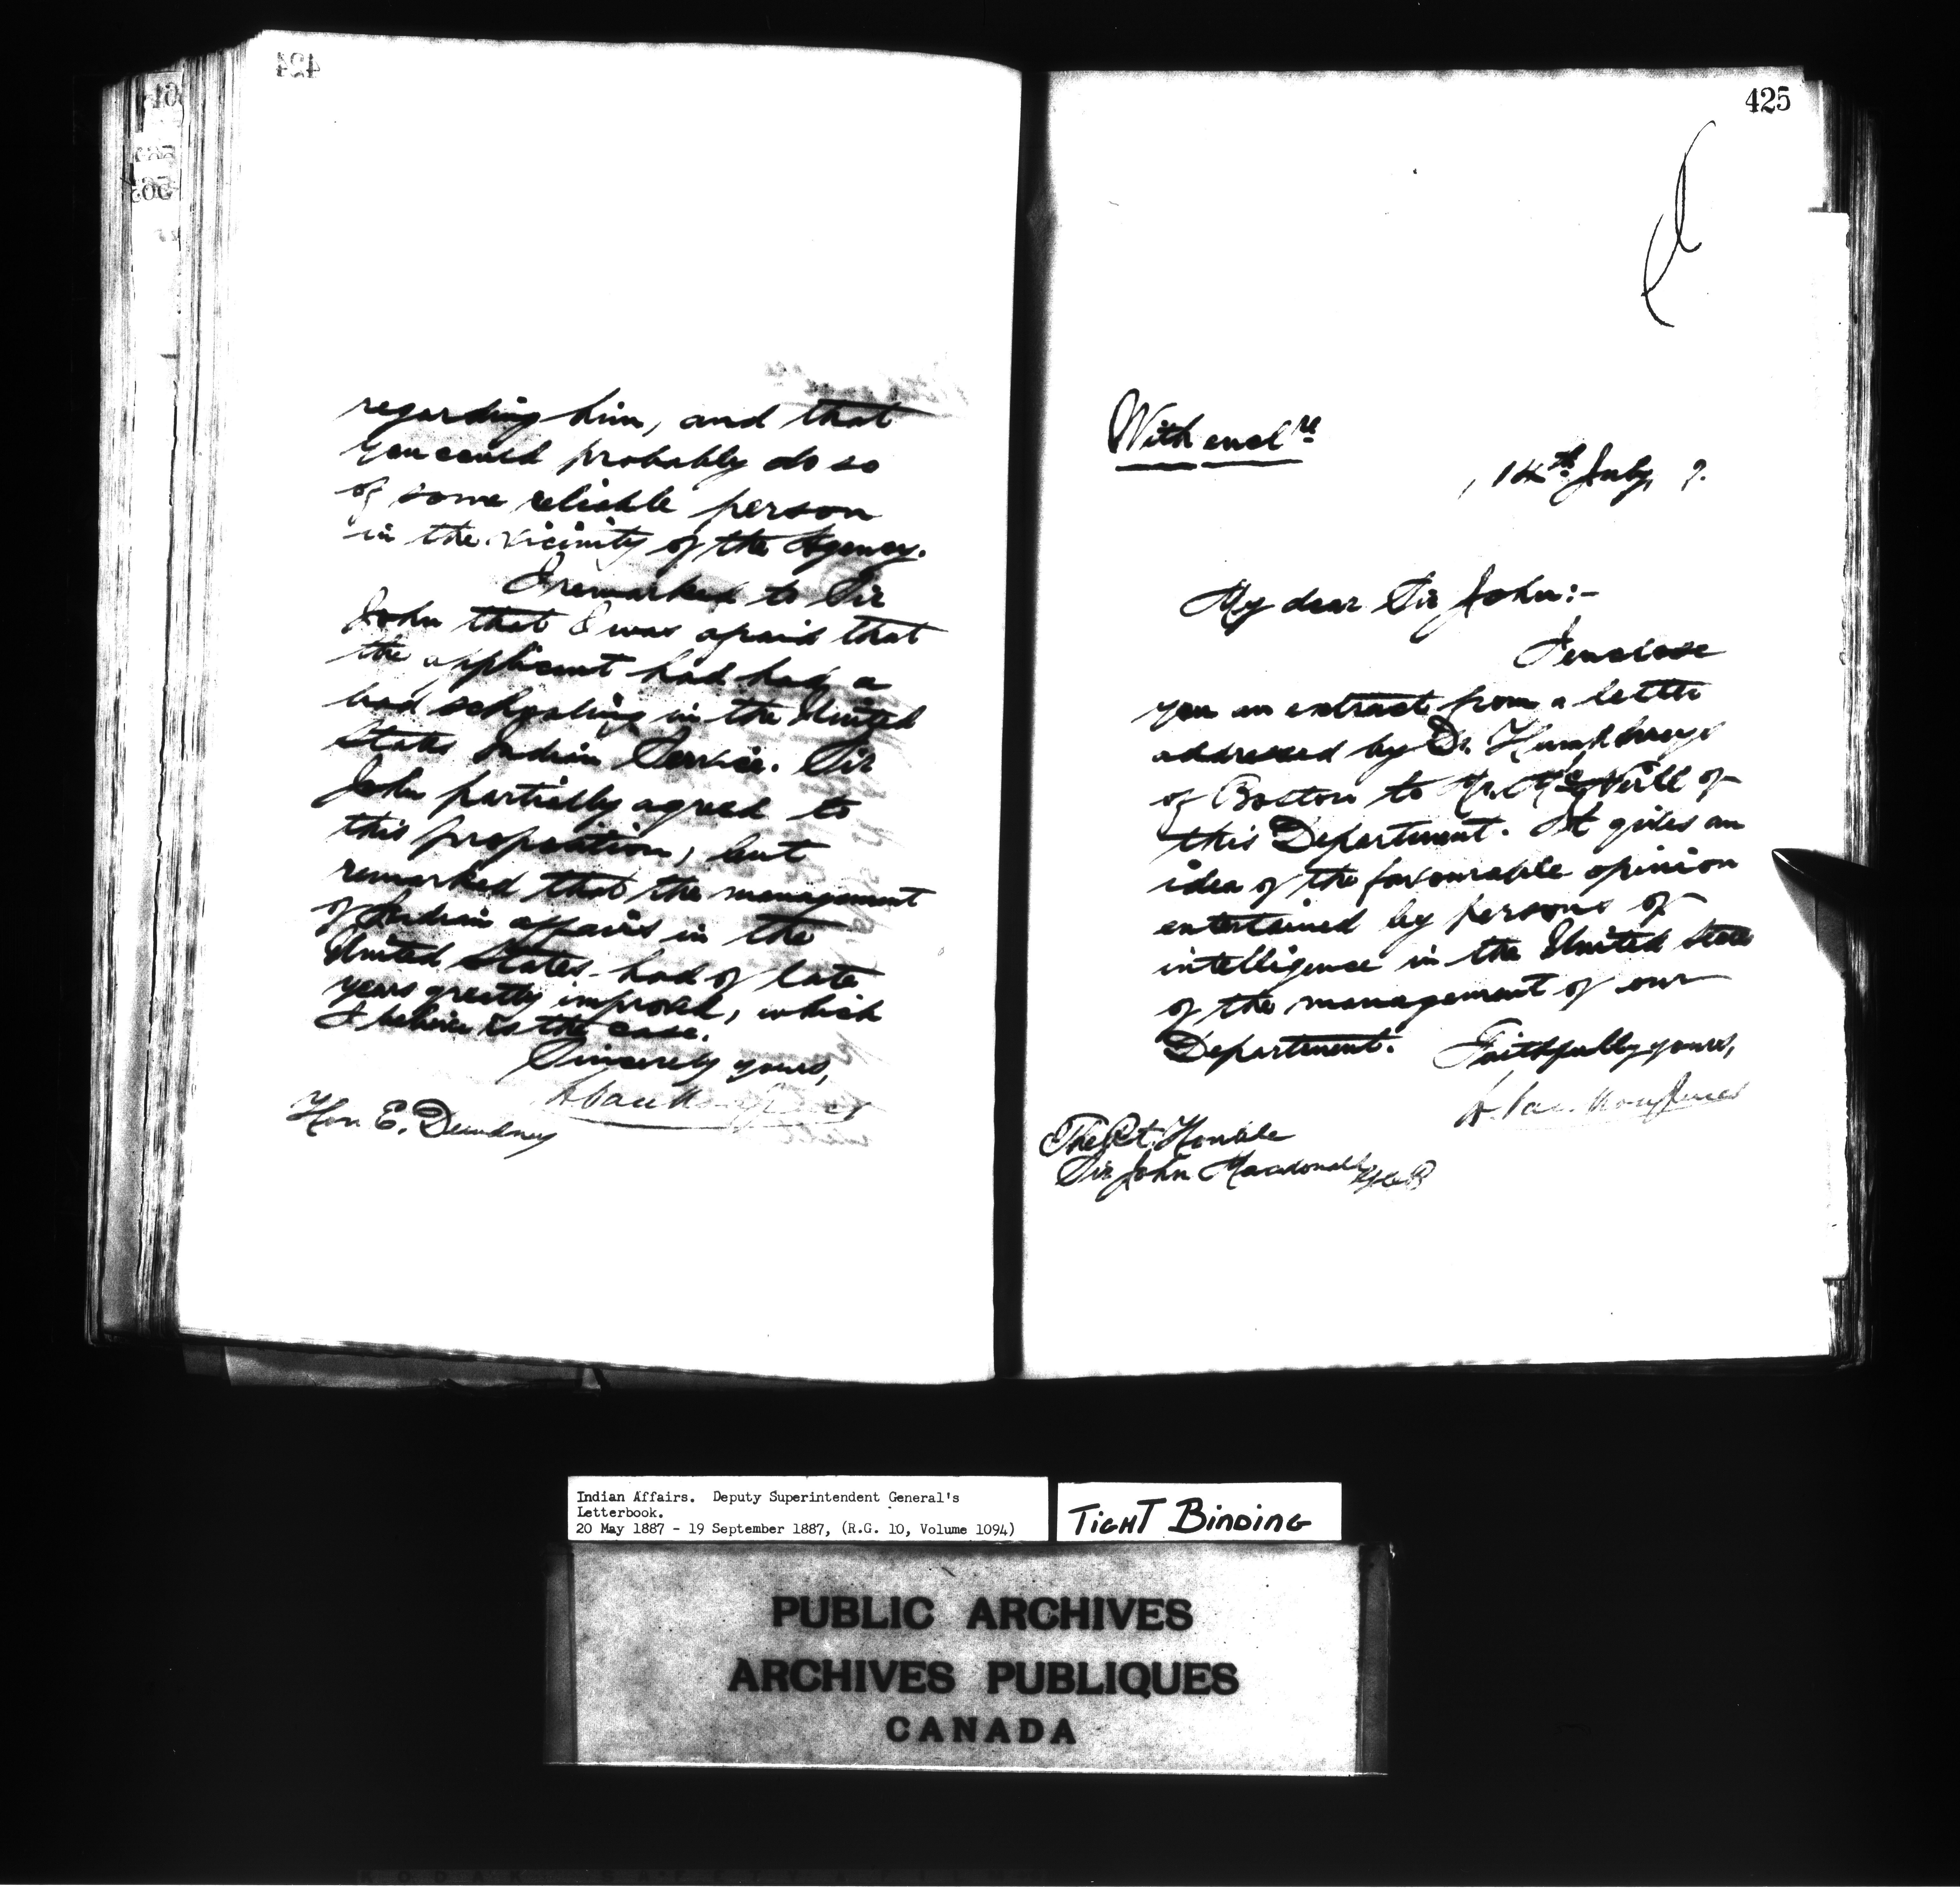 424
regarding him, and that
you could probably do so
of some reliable person
in the vicinity of the Agency.
I remarked to Sir
John that I was afraid that
the applicant had had a
bad schooling in the United
States Indian Service. Sir
John partially agreed to
this proposition, but
remarked that the management
of Indian affairs in the
United States had of late
years greatly improved, which
I believe is the case.
Sincerely yours,
L. Vankoughnet
Hon E. Dewdney
425
With enclre
14th July, 7.
My dear Sir John:-
I enclose
you an extract from a letter
addressed by Dr. Humphreys
of Boston to Mr. McNeill of
this Department. It gives an
idea of the favourable opinion
entertained by persons of
intelligence in the United States
of the management of our
Department. Faithfully yours,
L. Vankoughnet
The Rt. Honble
Sir John Macdonald GCB
Indian Affairs. Deputy Superintendent General's
Letterbook.
20 May 1887 - 19 September 1887, (R.G. 10, Volume 1094)
TIGHT BINDING
PUBLIC ARCHIVES
ARCHIVES PUBLIQUES
CANADA